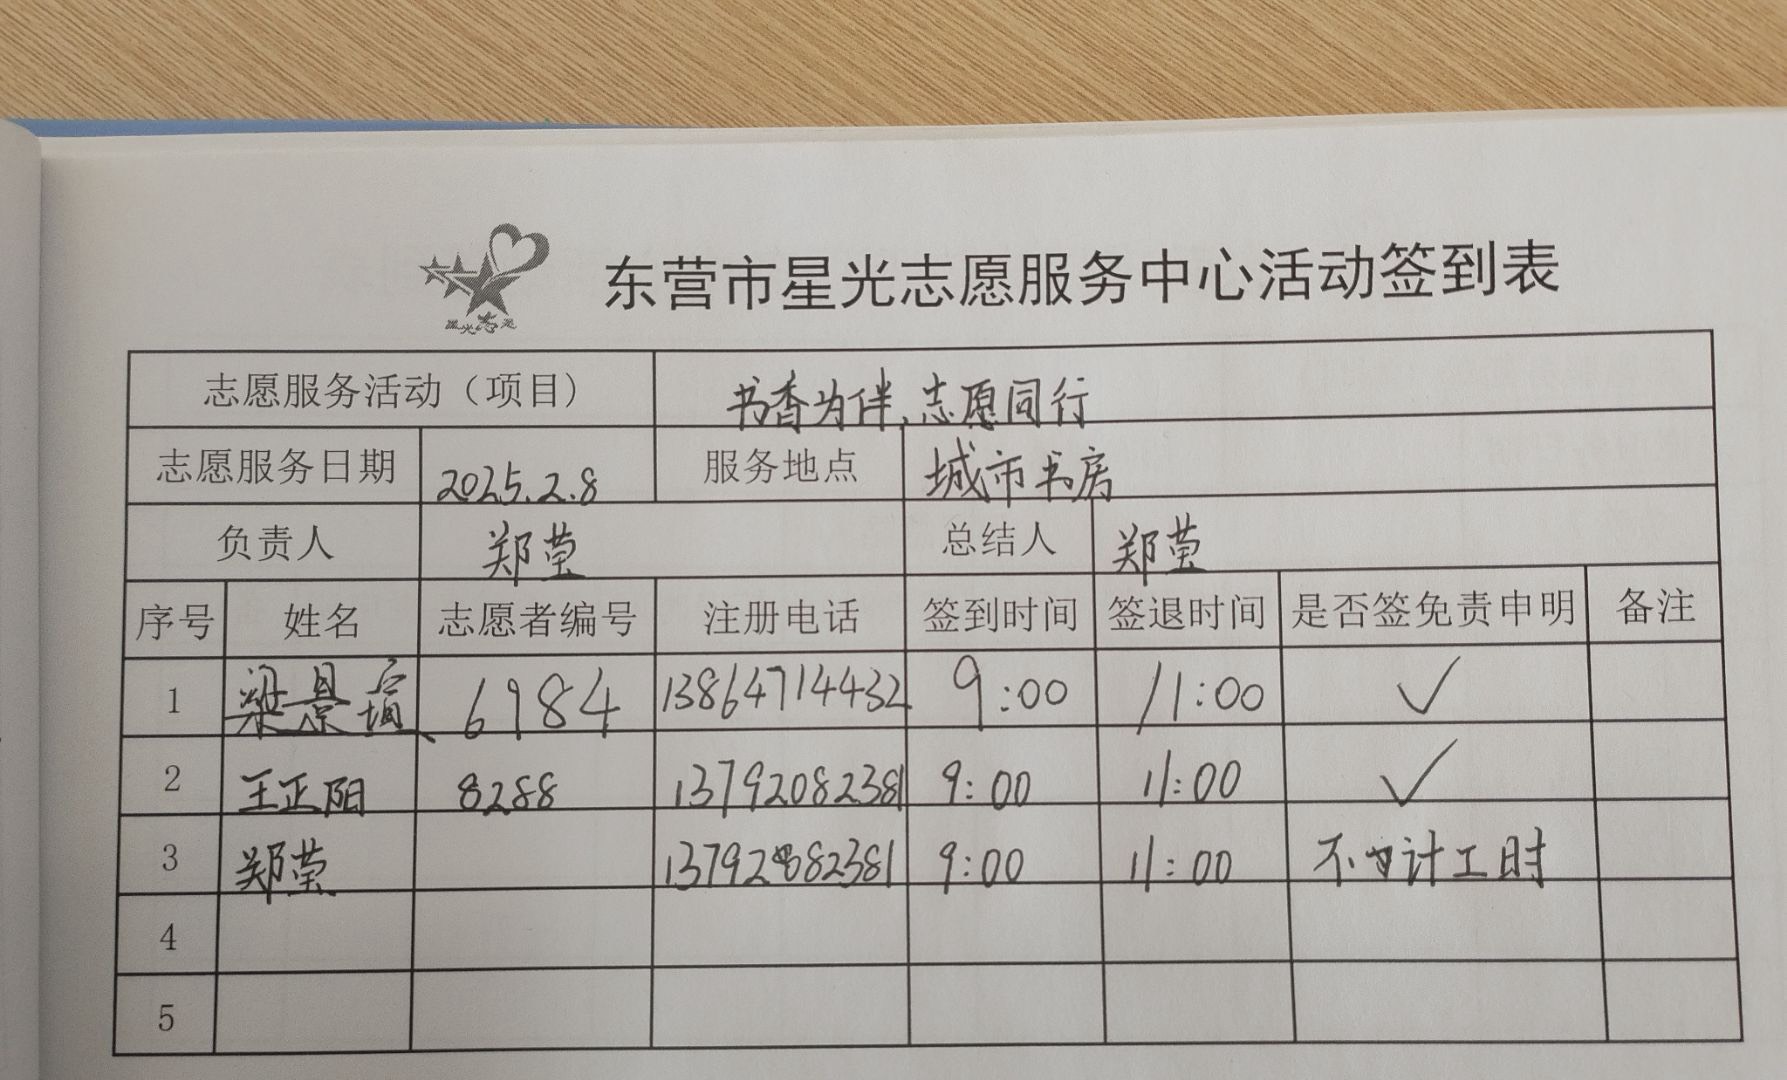 星光志愿
东营市星光志愿服务中心活动签到表
志愿服务活动（项目） 书香为伴,志愿同行
志愿服务日期 2025.2.8 服务地点 城市书房
负责人 郑莹 总结人 郑莹
序号 姓名 志愿者编号 注册电话 签到时间 签退时间 是否签免责申明 备注
1 梁景 6984 13864714432 9:00 11:00 ✓
2 王正阳 8288 13792082381 9:00 11:00 ✓
3 郑莹 13792082381 9:00 11:00 不计工时
4
5